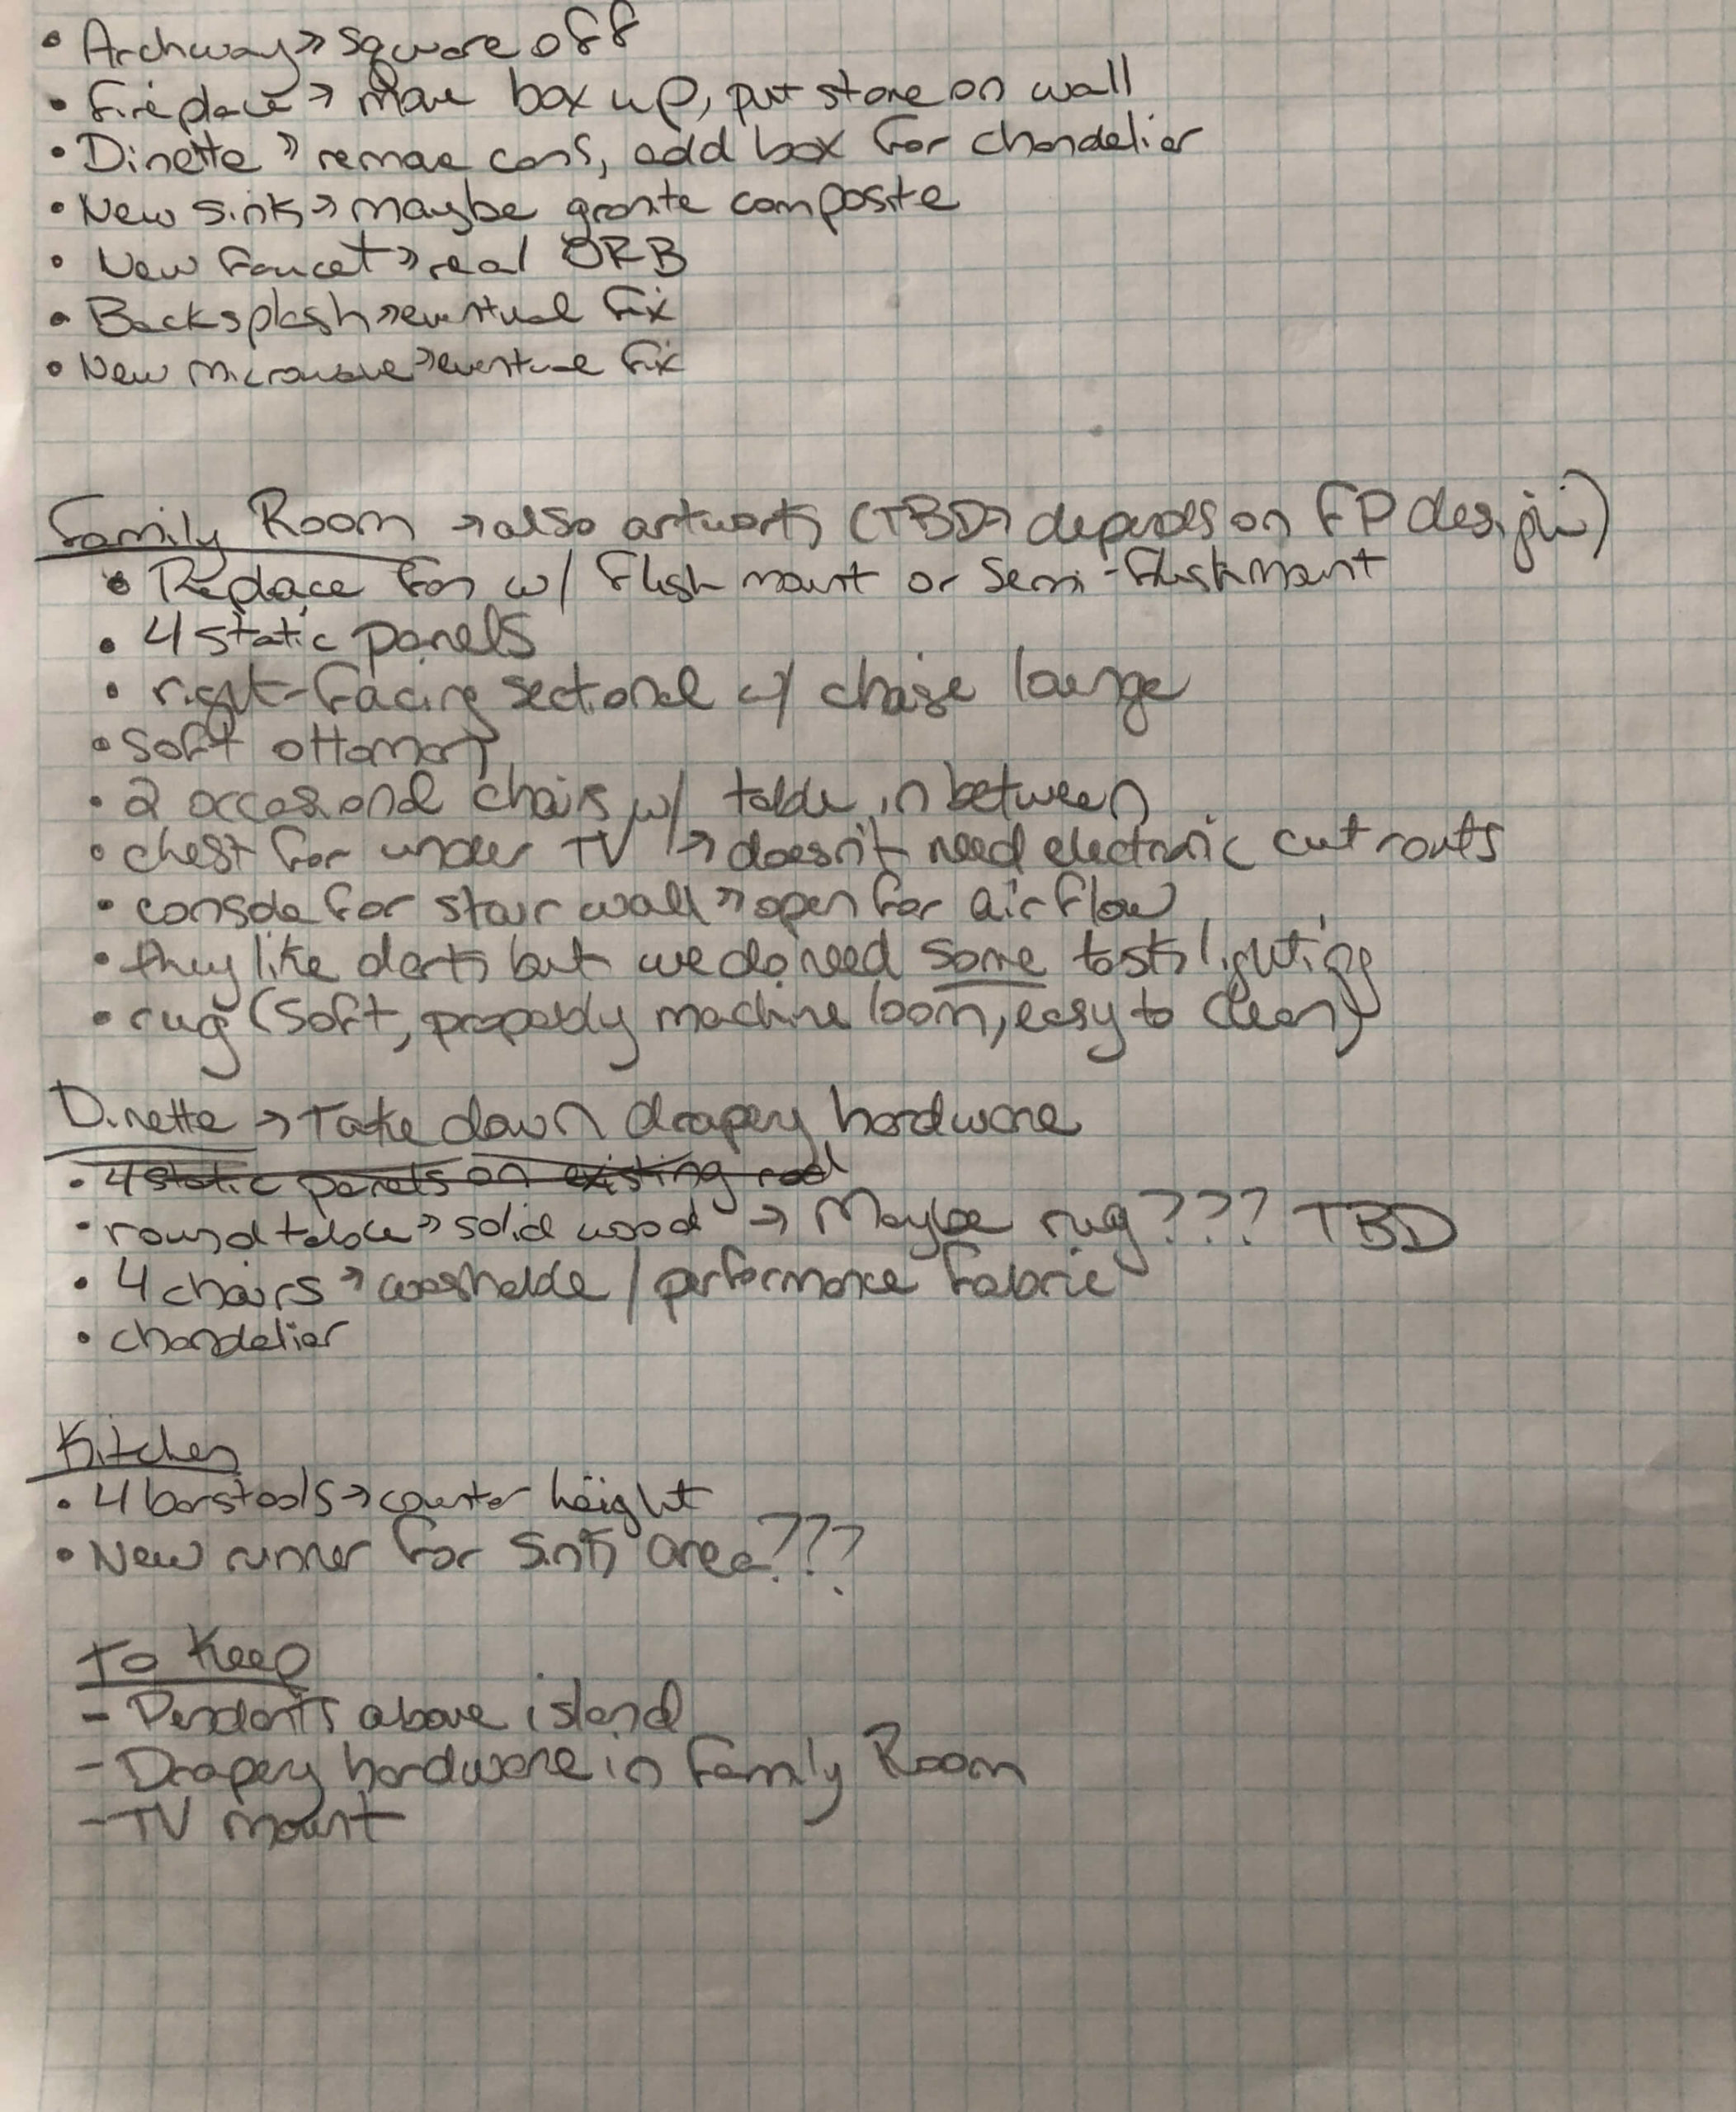 • Archway → square off
• Fireplace → move box up, put stone on wall
• Dinette → remove cans, add box for chandelier
• New sink → maybe granite composite
• New faucet → real ORB
• Backsplash → eventual fix
• New microwave → eventual fix
Family Room → also artwork (TBD → depends on FP design)
• Replace fan w/ flush mount or semi-flushmount
• 4 static panels
• right-facing sectional w/ chaise lounge
• soft ottoman
• 2 occasional chairs w/ table in between
• chest for under TV → doesn't need electronic cut routs
• console for stair wall → open for air flow
• they like dark but we do need some task lighting
• rug (soft, propably machine loom, easy to clean)
Dinette → Take down drapery hardware
• 4 static panels on existing rod
• round table → solid wood → Maybe rug??? TBD
• 4 chairs → washable / performance fabric
• chandelier
Kitchen
• 4 barstools → counter height
• New runner for sink area???
To Keep
- Pendants above island
- Drapery hardware in Family Room
- TV mount